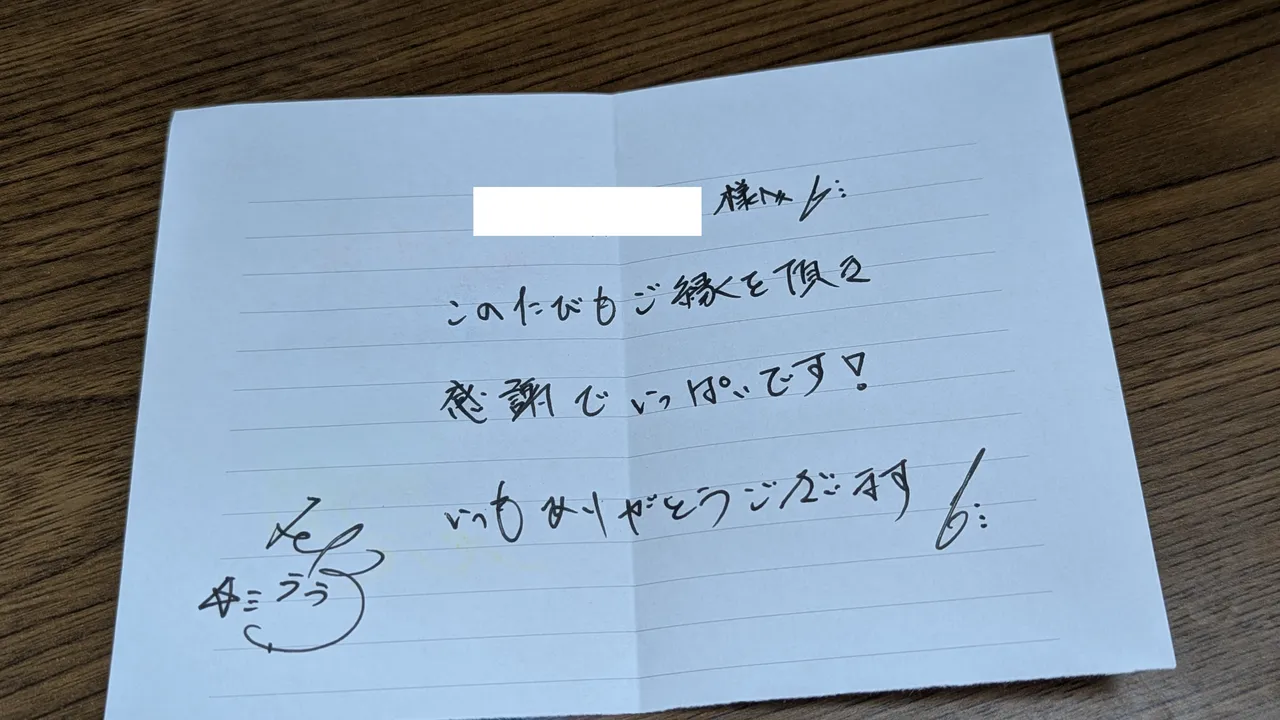 様へ
このたびもご縁を頂き
感謝でいっぱいです!
いつもありがとうございます